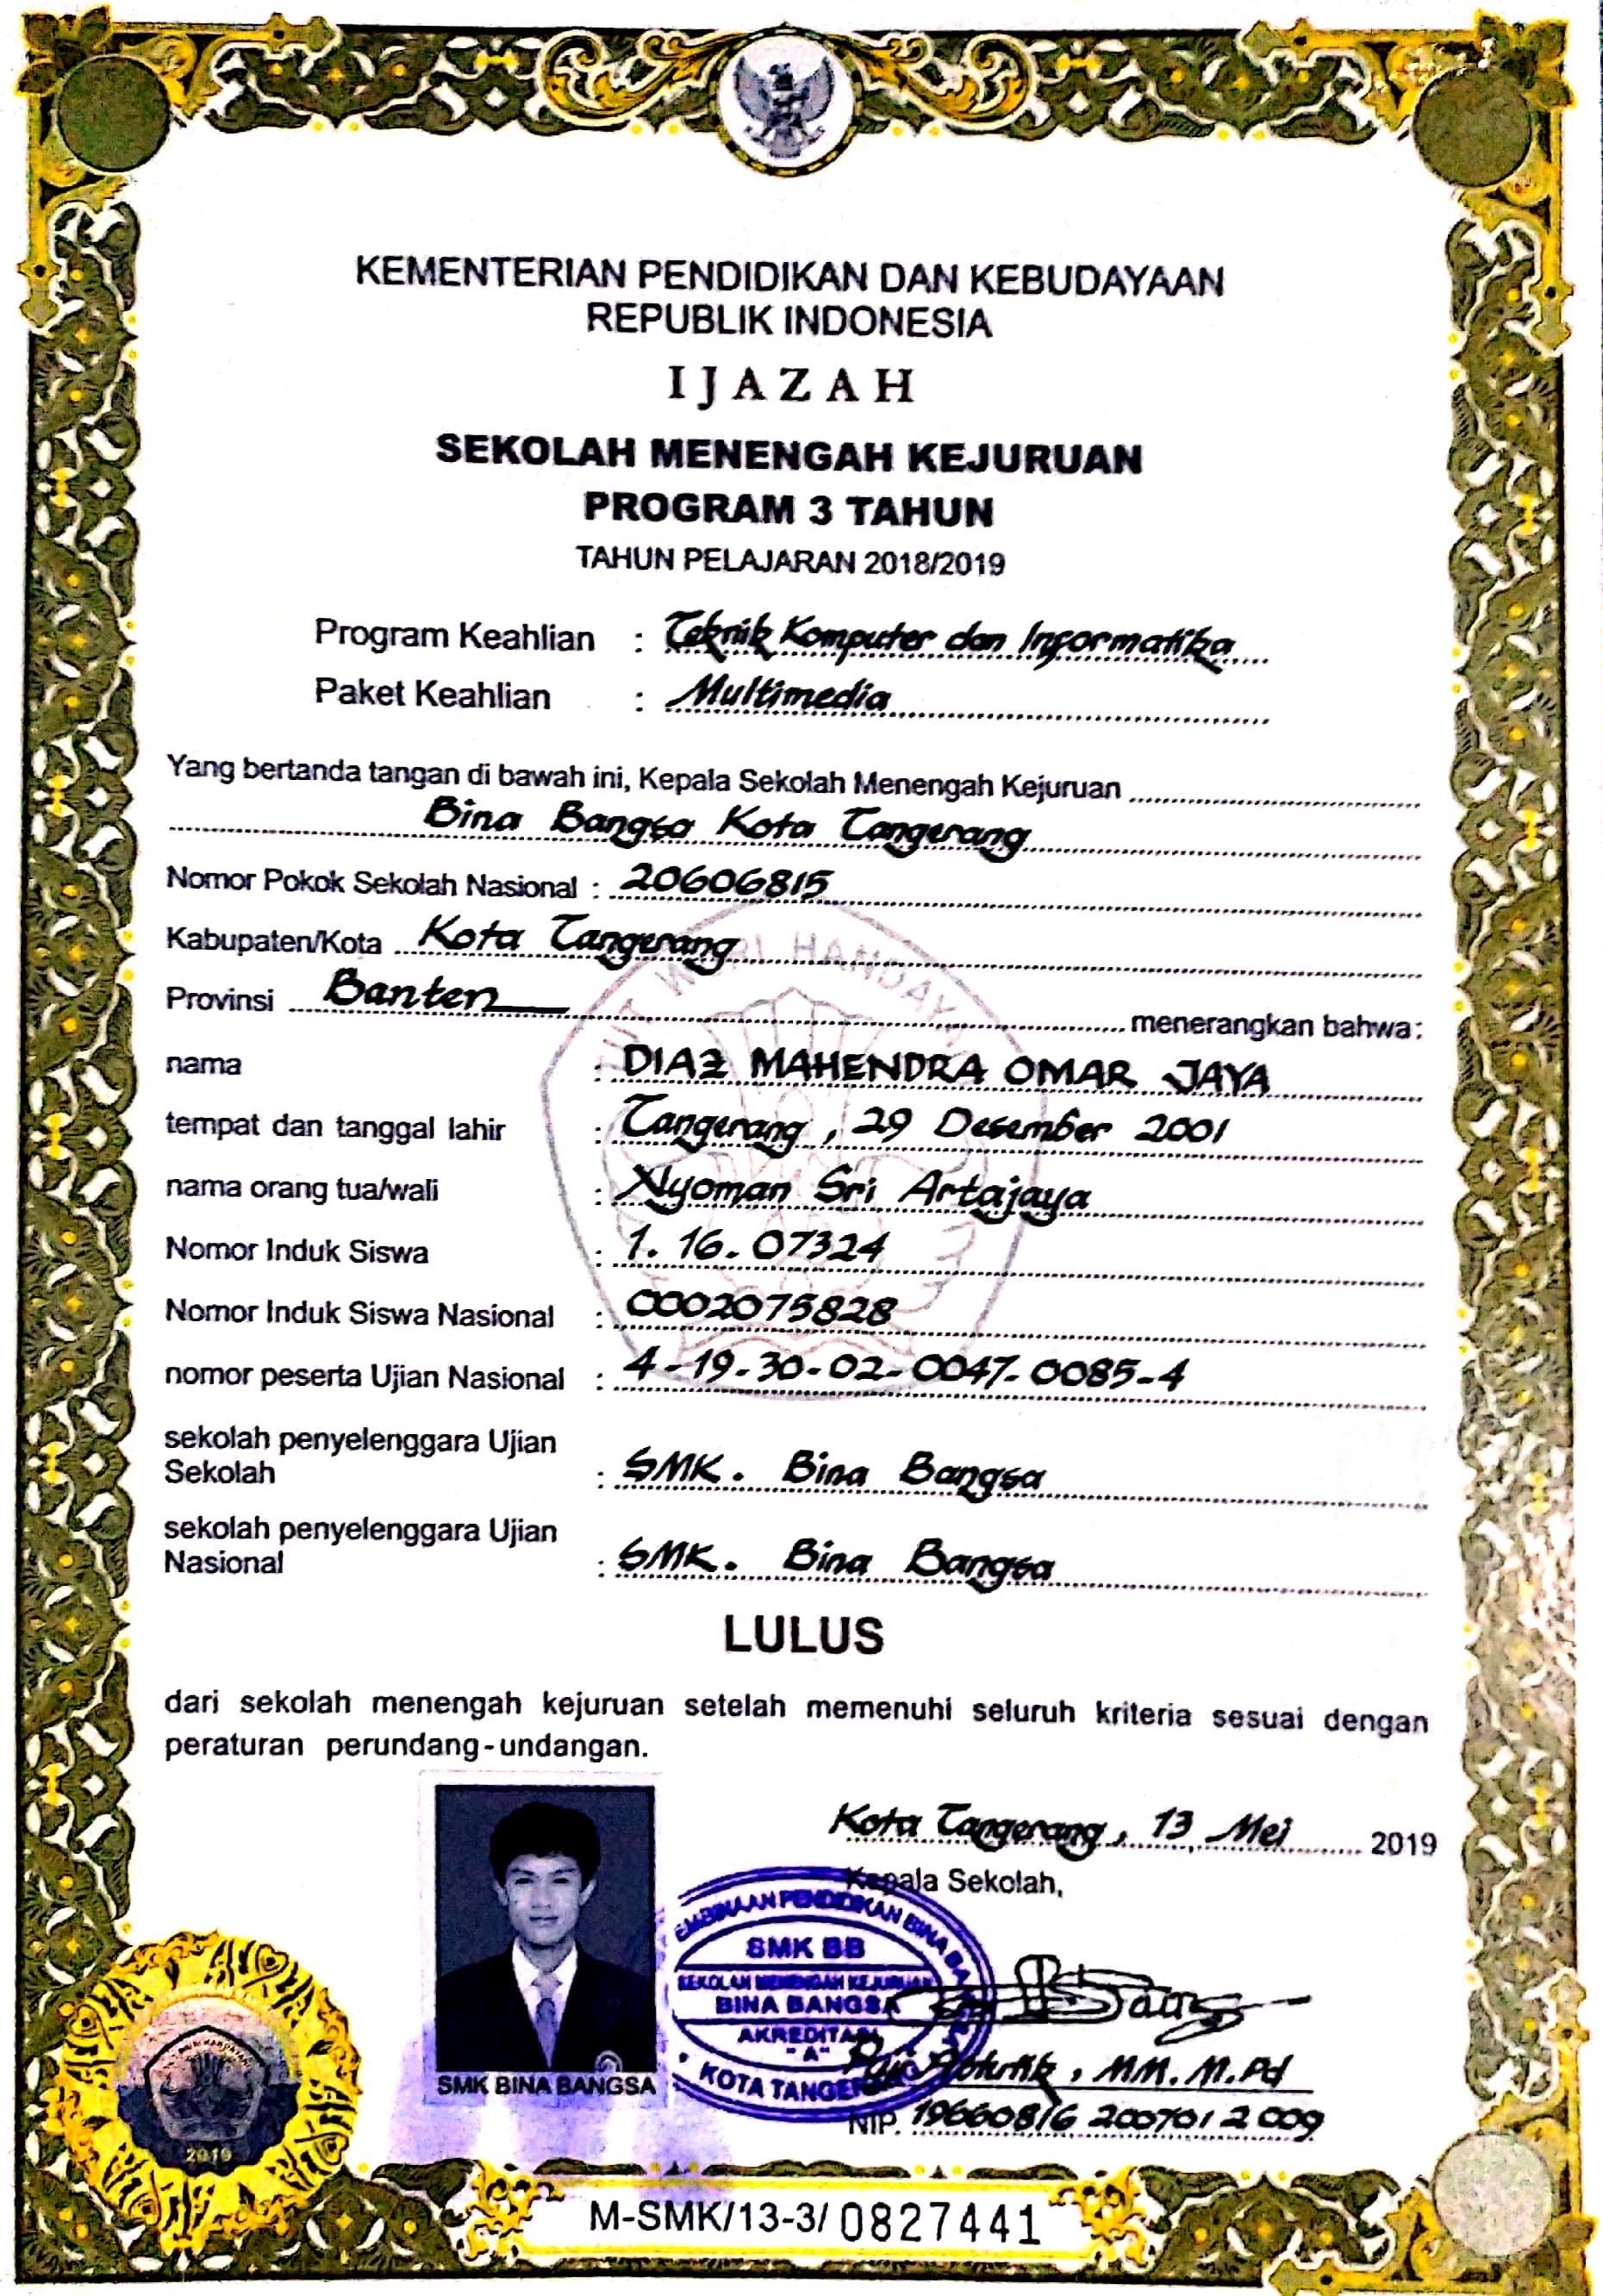 KEMENTERIAN PENDIDIKAN DAN KEBUDAYAAN
REPUBLIK INDONESIA
IJAZAH
SEKOLAH MENENGAH KEJURUAN
PROGRAM 3 TAHUN
TAHUN PELAJARAN 2018/2019
Program Keahlian : Teknik Komputer dan Informatika
Paket Keahlian : Multimedia
Yang bertanda tangan di bawah ini, Kepala Sekolah Menengah Kejuruan
Bina Bangsa Kota Tangerang
Nomor Pokok Sekolah Nasional : 20606815
Kabupaten/Kota Kota Tangerang
Provinsi Banten menerangkan bahwa:
nama : DIAZ MAHENDRA OMAR JAYA
tempat dan tanggal lahir : Tangerang, 29 Desember 2001
nama orang tua/wali : Nyoman Sri Artajaya
Nomor Induk Siswa : 1. 16. 07324
Nomor Induk Siswa Nasional : 0002075828
nomor peserta Ujian Nasional : 4-19-30-02-0047-0085-4
sekolah penyelenggara Ujian
Sekolah : SMK. Bina Bangsa
sekolah penyelenggara Ujian
Nasional : SMK. Bina Bangsa
LULUS
dari sekolah menengah kejuruan setelah memenuhi seluruh kriteria sesuai dengan
peraturan perundang-undangan.
Kota Tangerang, 13 Mei 2019
Kepala Sekolah,
PENDIDIKAN BINA
SMK BB
SEKOLAH MENENGAH KEJURUAN
BINA BANGSA
AKREDITASI
"A"
KOTA TANGERANG
MM. M.Pd
NIP. 19660816 200701 2 009
SMK BINA BANGSA
2019
M-SMK/13-3/ 0827441